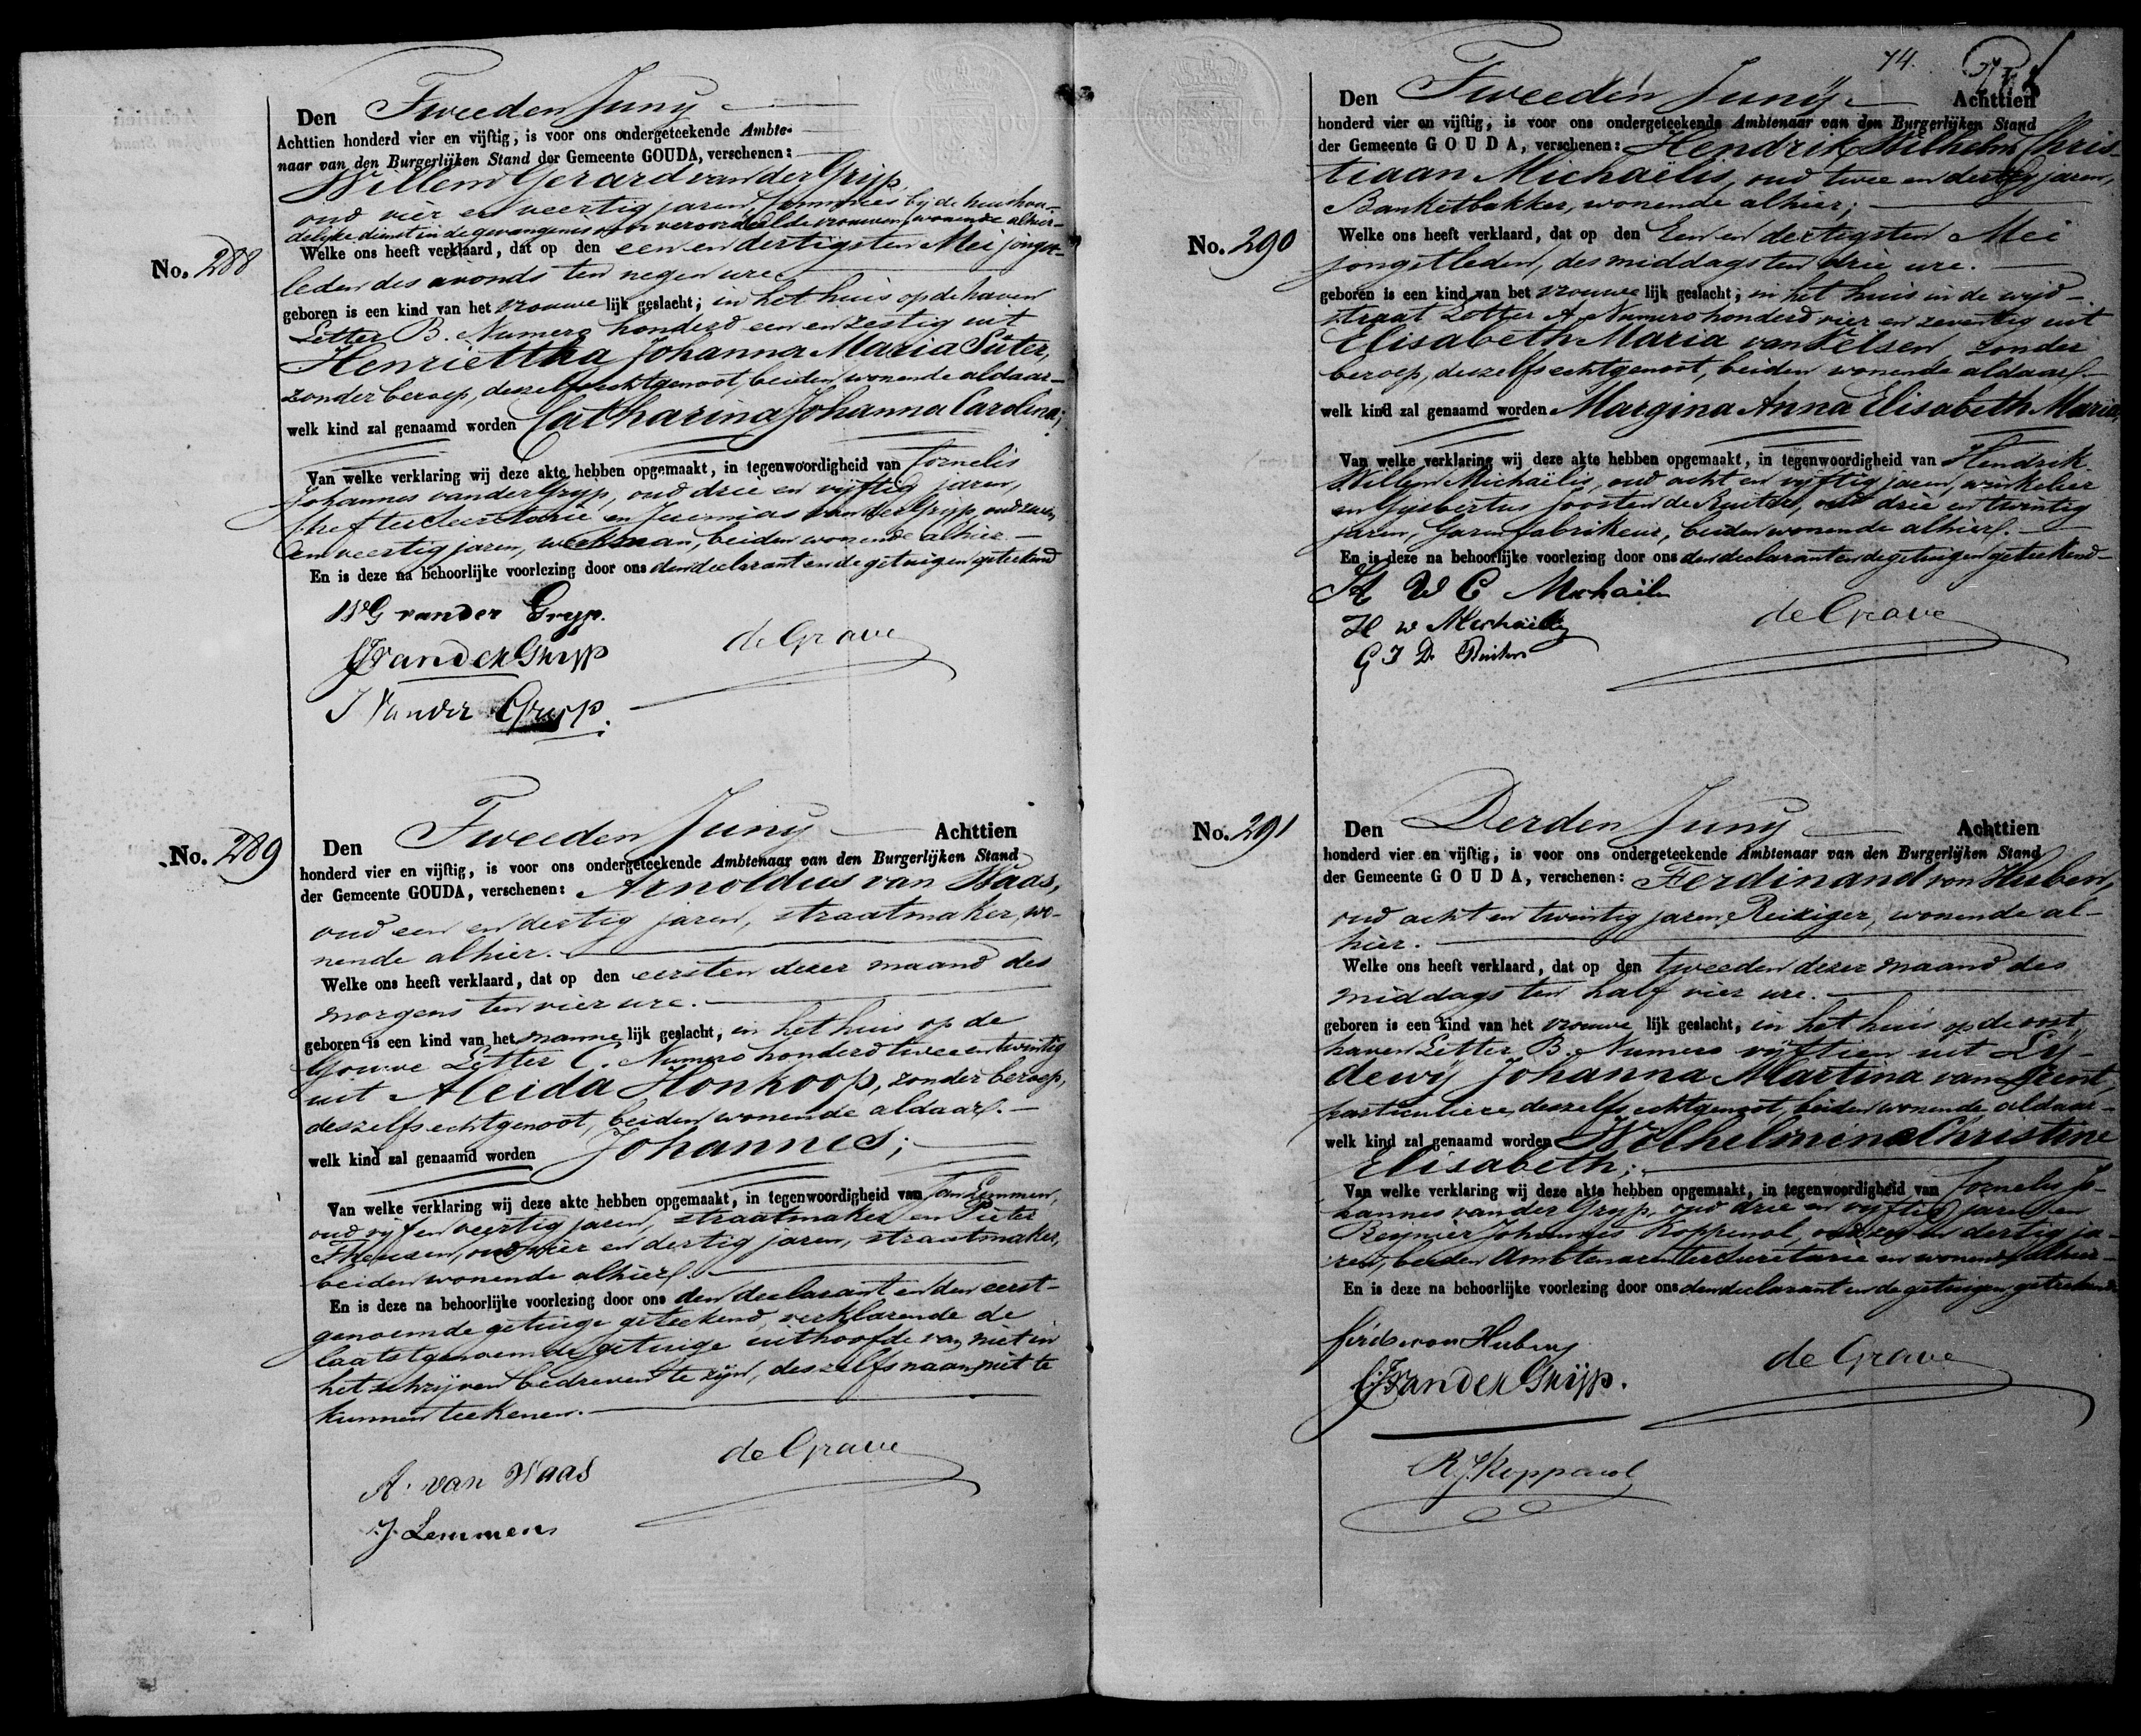 No. 288
Den Tweeden Juny
Achttien honderd vier en vijftig, is voor ons ondergeteekende Ambte-
naar van den Burgerlijken Stand der Gemeente GOUDA, verschenen:
Willem Gerard van der Grijp,
oud vier en veertig jaren, Commies bij de huishou-
delijke dienst in de gevangenis voor veroordeelde vrouwen, wonende alhier
Welke ons heeft verklaard, dat op den een en dertigsten Mei jongst-
leden des avonds ten negen ure
geboren is een kind van het vrouwe lijk geslacht; in het huis op de haven
Letter B. Numero honderd een en zestig uit
Henriettha Johanna Maria Süter,
zonder beroep, deszelfs echtgenoot, beiden wonende aldaar
welk kind zal genaamd worden Catharina Johanna Carolina;
Van welke verklaring wij deze akte hebben opgemaakt, in tegenwoordigheid van Cornelis
Johannes van der Gryp, oud drie en vijftig jaren,
chef ter Secretarie en Jeremias van der Grijp, oud
en veertig jaren, werkman, beiden wonende alhier.
En is deze na behoorlijke voorlezing door ons den declarant en de getuigen geteekend
WG van der Gryp.
CJ van der Grijp
de Grave
J van der Gryp.
No. 289
Den Tweeden Juny Achttien
honderd vier en vijftig, is voor ons ondergeteekende Ambtenaar van den Burgerlijken Stand
der Gemeente GOUDA, verschenen: Arnoldus van Haas,
oud een en dertig jaren, straatmaker, wo-
nende alhier.
Welke ons heeft verklaard, dat op den eersten dezer maand des
morgens ten vier ure.
geboren is een kind van het manne lijk geslacht, in het huis op de
Gouwe Letter C. Numero honderd twee en twintig
uit Aleida Honkoop, zonder beroep,
deszelfs echtgenoot, beiden wonende aldaar.
welk kind zal genaamd worden Johannes;
Van welke verklaring wij deze akte hebben opgemaakt, in tegenwoordigheid van Jan Lemmen,
oud vijf en veertig jaren, straatmaker en Pieter
oud vier en dertig jaren, straatmaker,
beiden wonende alhier.
En is deze na behoorlijke voorlezing door ons den declarant en den eerst-
genoemde getuige geteekend, verklarende de
laatstgenoemde getuige uithoofde van niet in
het schrijven bedreven te zijn, deszelfs naam niet te
kunnen teekenen.
A. van Haas
de Grave
J. Lemmens
74.
No. 290
Den Tweeden Juny Achttien
honderd vier en vijftig, is voor ons ondergeteekende Ambtenaar van den Burgerlijken Stand
der Gemeente GOUDA, verschenen: Hendrik Wilhelm Chris-
tiaan Michaëlis, oud twee en dertig jaren,
Banketbakker, wonende alhier;
Welke ons heeft verklaard, dat op den Een en dertigsten Mei
jongstleden, des middags ten drie ure.
geboren is een kind van het vrouwe lijk geslacht; in het huis in de wijd-
straat Letter A. Numero honderd vier en zeventig uit
Elisabeth Maria van Velsen, zonder
beroep, deszelfs echtgenoot, beiden wonende aldaar.
welk kind zal genaamd worden Margina Anna Elisabeth Maria,
Van welke verklaring wij deze akte hebben opgemaakt, in tegenwoordigheid van Hendrik
Willem Michaëlis, oud acht en vijftig jaren, winkelier
en Gijsbertus Joosten de Ruiter, oud drie en twintig
jaren, Garenfabrikeur, beiden wonende alhier.
En is deze na behoorlijke voorlezing door ons den declarant en de getuigen geteekend
H W C Michaëlis
H W Michaëlis
de Grave
G J De Ruiter
No. 291
Den Derden Juny Achttien
honderd vier en vijftig, is voor ons ondergeteekende Ambtenaar van den Burgerlijken Stand
der Gemeente GOUDA, verschenen: Ferdinand von Huben,
oud acht en twintig jaren, Reiziger, wonende al-
hier.
Welke ons heeft verklaard, dat op den tweeden dezer maand des
middags ten half vier ure.
geboren is een kind van het vrouwe lijk geslacht, in het huis op de oost
haven Letter B. Numero vijftien uit Ly-
dewij Johanna Martina van Gent,
particuliere, deszelfs echtgenoot, beiden wonende aldaar
welk kind zal genaamd worden Wilhelmina Christine
Elisabeth;
Van welke verklaring wij deze akte hebben opgemaakt, in tegenwoordigheid van Cornelis Jo-
hannes van der Gryp, oud drie en vijftig jaren en
Reynier Johannes Koppenol, oud en dertig ja-
ren, beiden Ambtenaren ter Secretarie en wonende alhier
En is deze na behoorlijke voorlezing door ons den declarant en de getuigen geteekend
Ferd. von Huben
CJ van der Grijp.
de Grave
RJ Koppenol